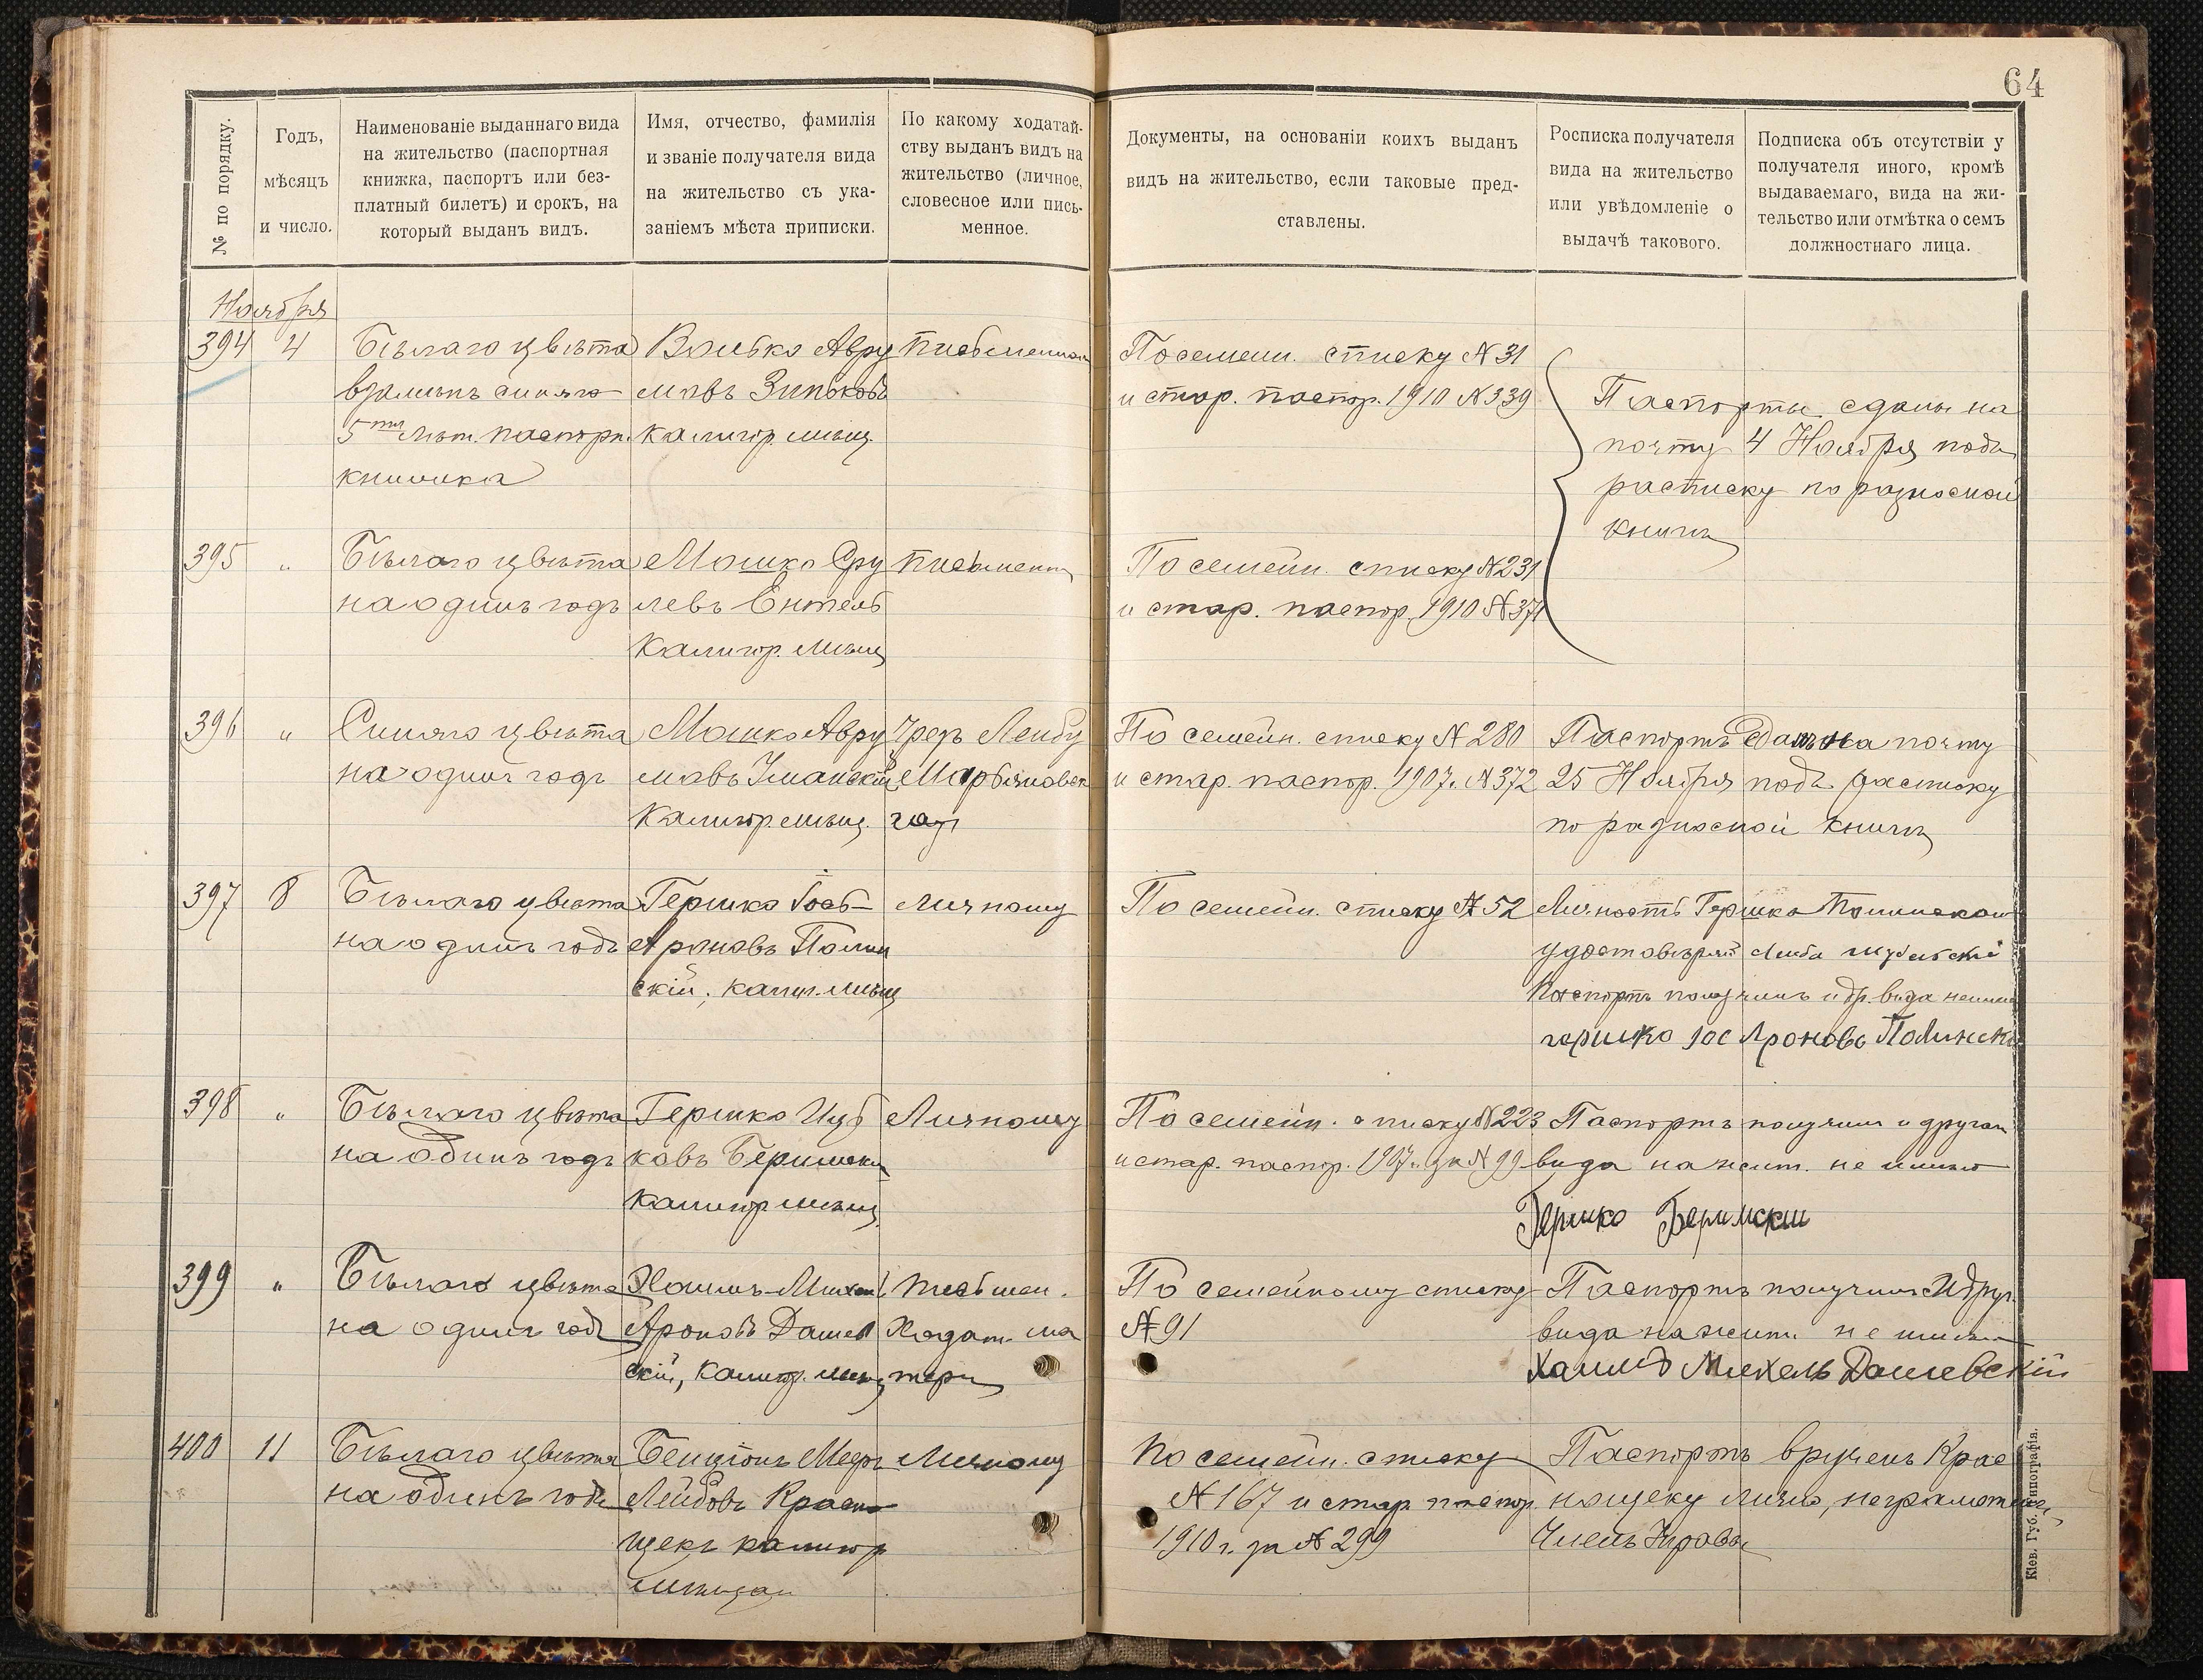 64
№ по порядку.
Годъ,
мѣсяцъ
и число.
Наименованіе выданнаго вида
на жительство (паспортная
книжка, паспортъ или без-
платный билетъ) и срокъ, на
который выданъ видъ.
Имя, отчество, фамилія
и званіе получателя вида
на жительство съ ука-
заніемъ мѣста приписки.
По какому ходатай-
ству выданъ видъ на
жительство (личное,
словесное или пись-
менное.
Документы, на основаніи коихъ выданъ
видъ на жительство, если таковые пред-
ставлены.
Росписка получателя
вида на жительство
или увѣдомленіе о
выдачѣ такового.
Подписка объ отсутствіи у
получателя иного, кромѣ
выдаваемаго, вида на жи-
тельство или отмѣтка о семъ
должностнаго лица.
Ноября
394
4
Бѣлаго цвѣта
взамѣнъ синяго
5ти лѣт. паспорт.
книжка
Волько Авру
мовъ Зиньковъ
калигор. мѣщ.
По семейн. списку № 31
и стар. паспор. 1910 № 339
Паспорты сданы на
почту 4 Ноября подъ
расписку по разносной
книги
395
"
Бѣлаго цвѣта
на одинъ годъ
Мошко Сру
левъ Ентель
Калигор. мѣщ
Письмен
По семейн. списку № 231
и стар. паспор. 1910 № 371
396
"
Синяго цвѣта
на одинъ годъ
Мошко Авру
мовъ Уманскій
Калигор. мѣщ.
Чрезъ Лейбу
По семейн. списку № 280
и стар. паспор. 1907г. № 372
Паспортъ сданъ на почту
25 Ноября подъ расписку
по разносной книги
397
8
Бѣлаго цвѣта
на одинъ годъ
Гершко Іось-
Ароновъ Полин
скій, калиг. мѣщ
Личному
По семейн. списку № 52
Личность Гершка Полинскаго
удостовѣрилъ Лейба
Паспортъ получилъ и др. вида не имѣю
гершко Иос Ароновъ Полинскій
398
"
Бѣлаго цвѣта
на одинъ годъ
Гершко Иць
ковъ Беримски
калигор мѣщ
Личному
По семейн. списку № 223
и стар. паспор. 1907г. за № 99
Паспортъ получилъ и другого
вида на жит. не имѣю
Гершко Беримскій
399
"
Бѣлаго цвѣта
на одинъ годъ
Хаимъ-Михел
Ароновъ Дашев
скій, калигор. мѣщ
Письмен.
Ходат. ма
тери
По семейному списку
№ 91
Паспортъ получилъ и друг.
вида на жит. не имѣю
Хаимъ Михель Дашевскій
400
11
Бѣлаго цвѣта
на одинъ годъ
Бенціонъ Меер
Лейбовъ Красно
щекъ калигор
мѣщан
Личному
По семейн. списку
№ 167 и стар. паспор.
1910 г. за № 299
Паспортъ врученъ Крас
нощеку лично, неграмотенъ
Членъ Управы
Кіев. Губ. Типографія.